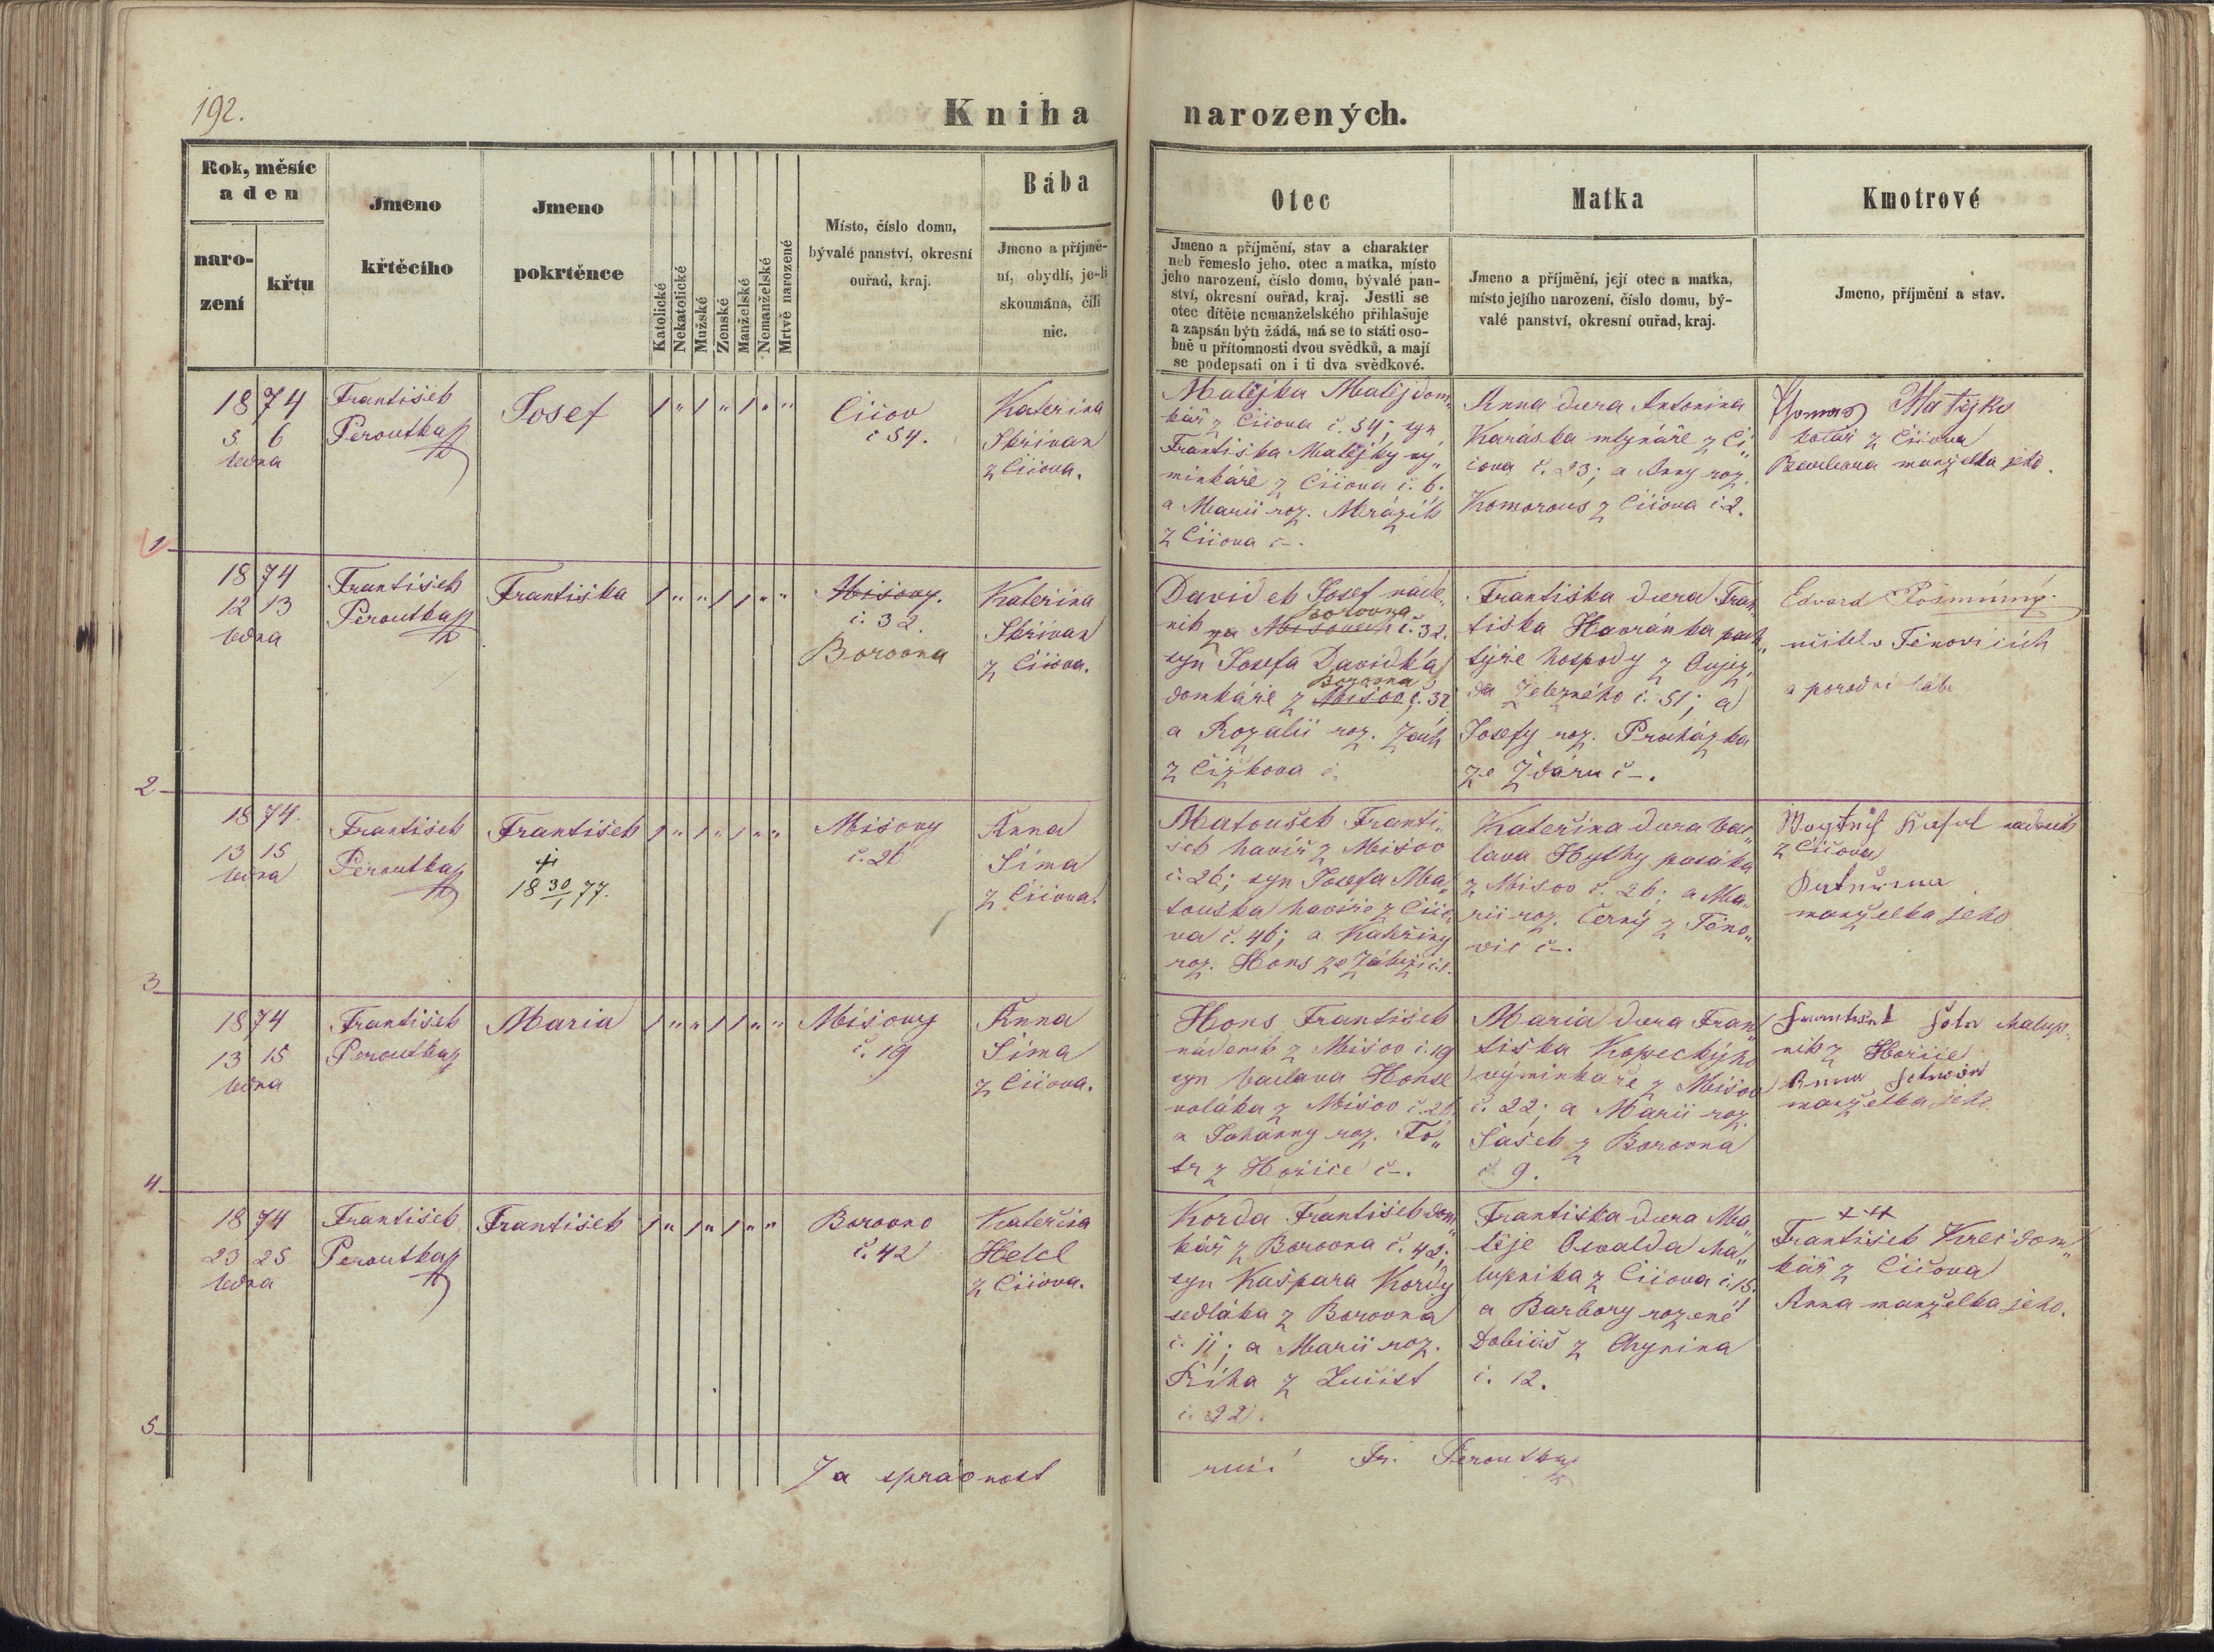 192.
Kniha narozených.
Rok, měsíc
a den
naro-
zení
křtu
Jmeno
křtěcího
Jmeno
pokrtěnce
Katolické
Nekatolické
Mužské
Ženské
Manželské
Nemanželské
Mrtvě narozené
Místo, číslo domu,
bývalé panství, okresní
ouřad, kraj.
Bába
Jmeno a příjmě-
ní, obydlí, je-li
skoumána, čili
nic.
Otec
Jmeno a příjmění, stav a charakter
neb řemeslo jeho, otec a matka, místo
jeho narození, číslo domu, bývalé pan-
ství, okresní ouřad, kraj. Jestli se
otec dítěte nemanželského přihlašuje
a zapsán býti žádá, má se to státi oso-
bně u přítomnosti dvou svědků, a mají
se podepsati on i ti dva svědkové.
Matka
Jmeno a příjmění, její otec a matka,
místo jejího narození, číslo domu, bý-
valé panství, okresní ouřad, kraj.
Kmotrové
Jmeno, příjmění a stav.
1874
5 6
ledna
František
Peroutka
Josef
1 " 1 " 1 " "
Číčov
č 54.
Kateřina
Skřivan
z Číčova.
Matějka Matěj dom„
kář z Číčova č. 54; syn
Františka Matějky vý„
minkáře z Číčova č. 6.
a Marii roz. Mrázík
z Číčova č –.
Anna dcera Antonína
Karáska mlynáře z Čí„
čova č. 23; a Anny roz.
Komorous z Číčova č 2.
Matějka
z Číčova
manželka jeho.
1
1874
12 13
ledna
František
Peroutka
Františka
1 " " 1 1 " "
Míšovy.
č. 32
Borovna
Kateřina
Skřivan
z Číčova.
Davídek Josef náde„
Borovna
ník na Míšovech č. 32.
syn Josefa Davídka
Borovna
domkáře z Míšov č. 32
a Rozalii roz. Zach
z Čížkova č.
Františka dcera Fran„
tiška Havránka pach„
týře hospody z Oujez„
da železného č. 51; a
Josefy roz. Procházka
ze Žďáru č –.
Edvard
učitel v Těnovicích
a porodní bába
2
1874.
13 15
ledna
František
Peroutka
František
†
18 30/1 77.
1 " 1 " 1 " "
Míšovy
č. 26
Anna
Šíma
z Číčova.
Matoušek Franti„
šek havíř z Míšov
č. 26; syn Josefa Ma„
touška havíře z Číčo„
va č. 46; a Kateřiny
roz. Hons ze
Kateřina dcera Vác„
lava
z Míšov č. 26; a Ma„
rii roz. Černý z Těno„
vic č –.
z Číčova
manželka jeho
3
1874
13 15
ledna
František
Peroutka
Maria
1 " " 1 1 " "
Míšovy
č. 19
Anna
Šíma
z Číčova.
Hons František
nádeník z Míšov č. 19
syn Václava Honse
z Míšov č. 26
a Johanny roz. Fo„
tr z Hořice č –.
Maria dcera Fran„
tiška Kopeckýho
výminkáře z Míšov
č. 22; a Marii roz.
Šašek z Borovna
č 9.
chalup„
ník z Hořice
Anna
manželka jeho
4
1874
23 25
ledna
František
Peroutka
František
1 " 1 " 1 " "
Borovno
č. 42
Kateřina
Helcl
z Číčova.
Korda František dom„
kář z Borovna č. 42;
syn Kašpara Kordy
sedláka z Borovna
č. 11; a Marii roz.
Říha z Lučišt
č. 22.
Františka dcera Ma„
těje Osvalda cha„
lupníka z Číčova č. 15.
a Barbory rozené
Tobiáš z Chynína
č. 12.
+++
František Krei dom„
kář z Číčova
Anna manželka jeho.
5
Za správnost ručí Fr. Peroutka